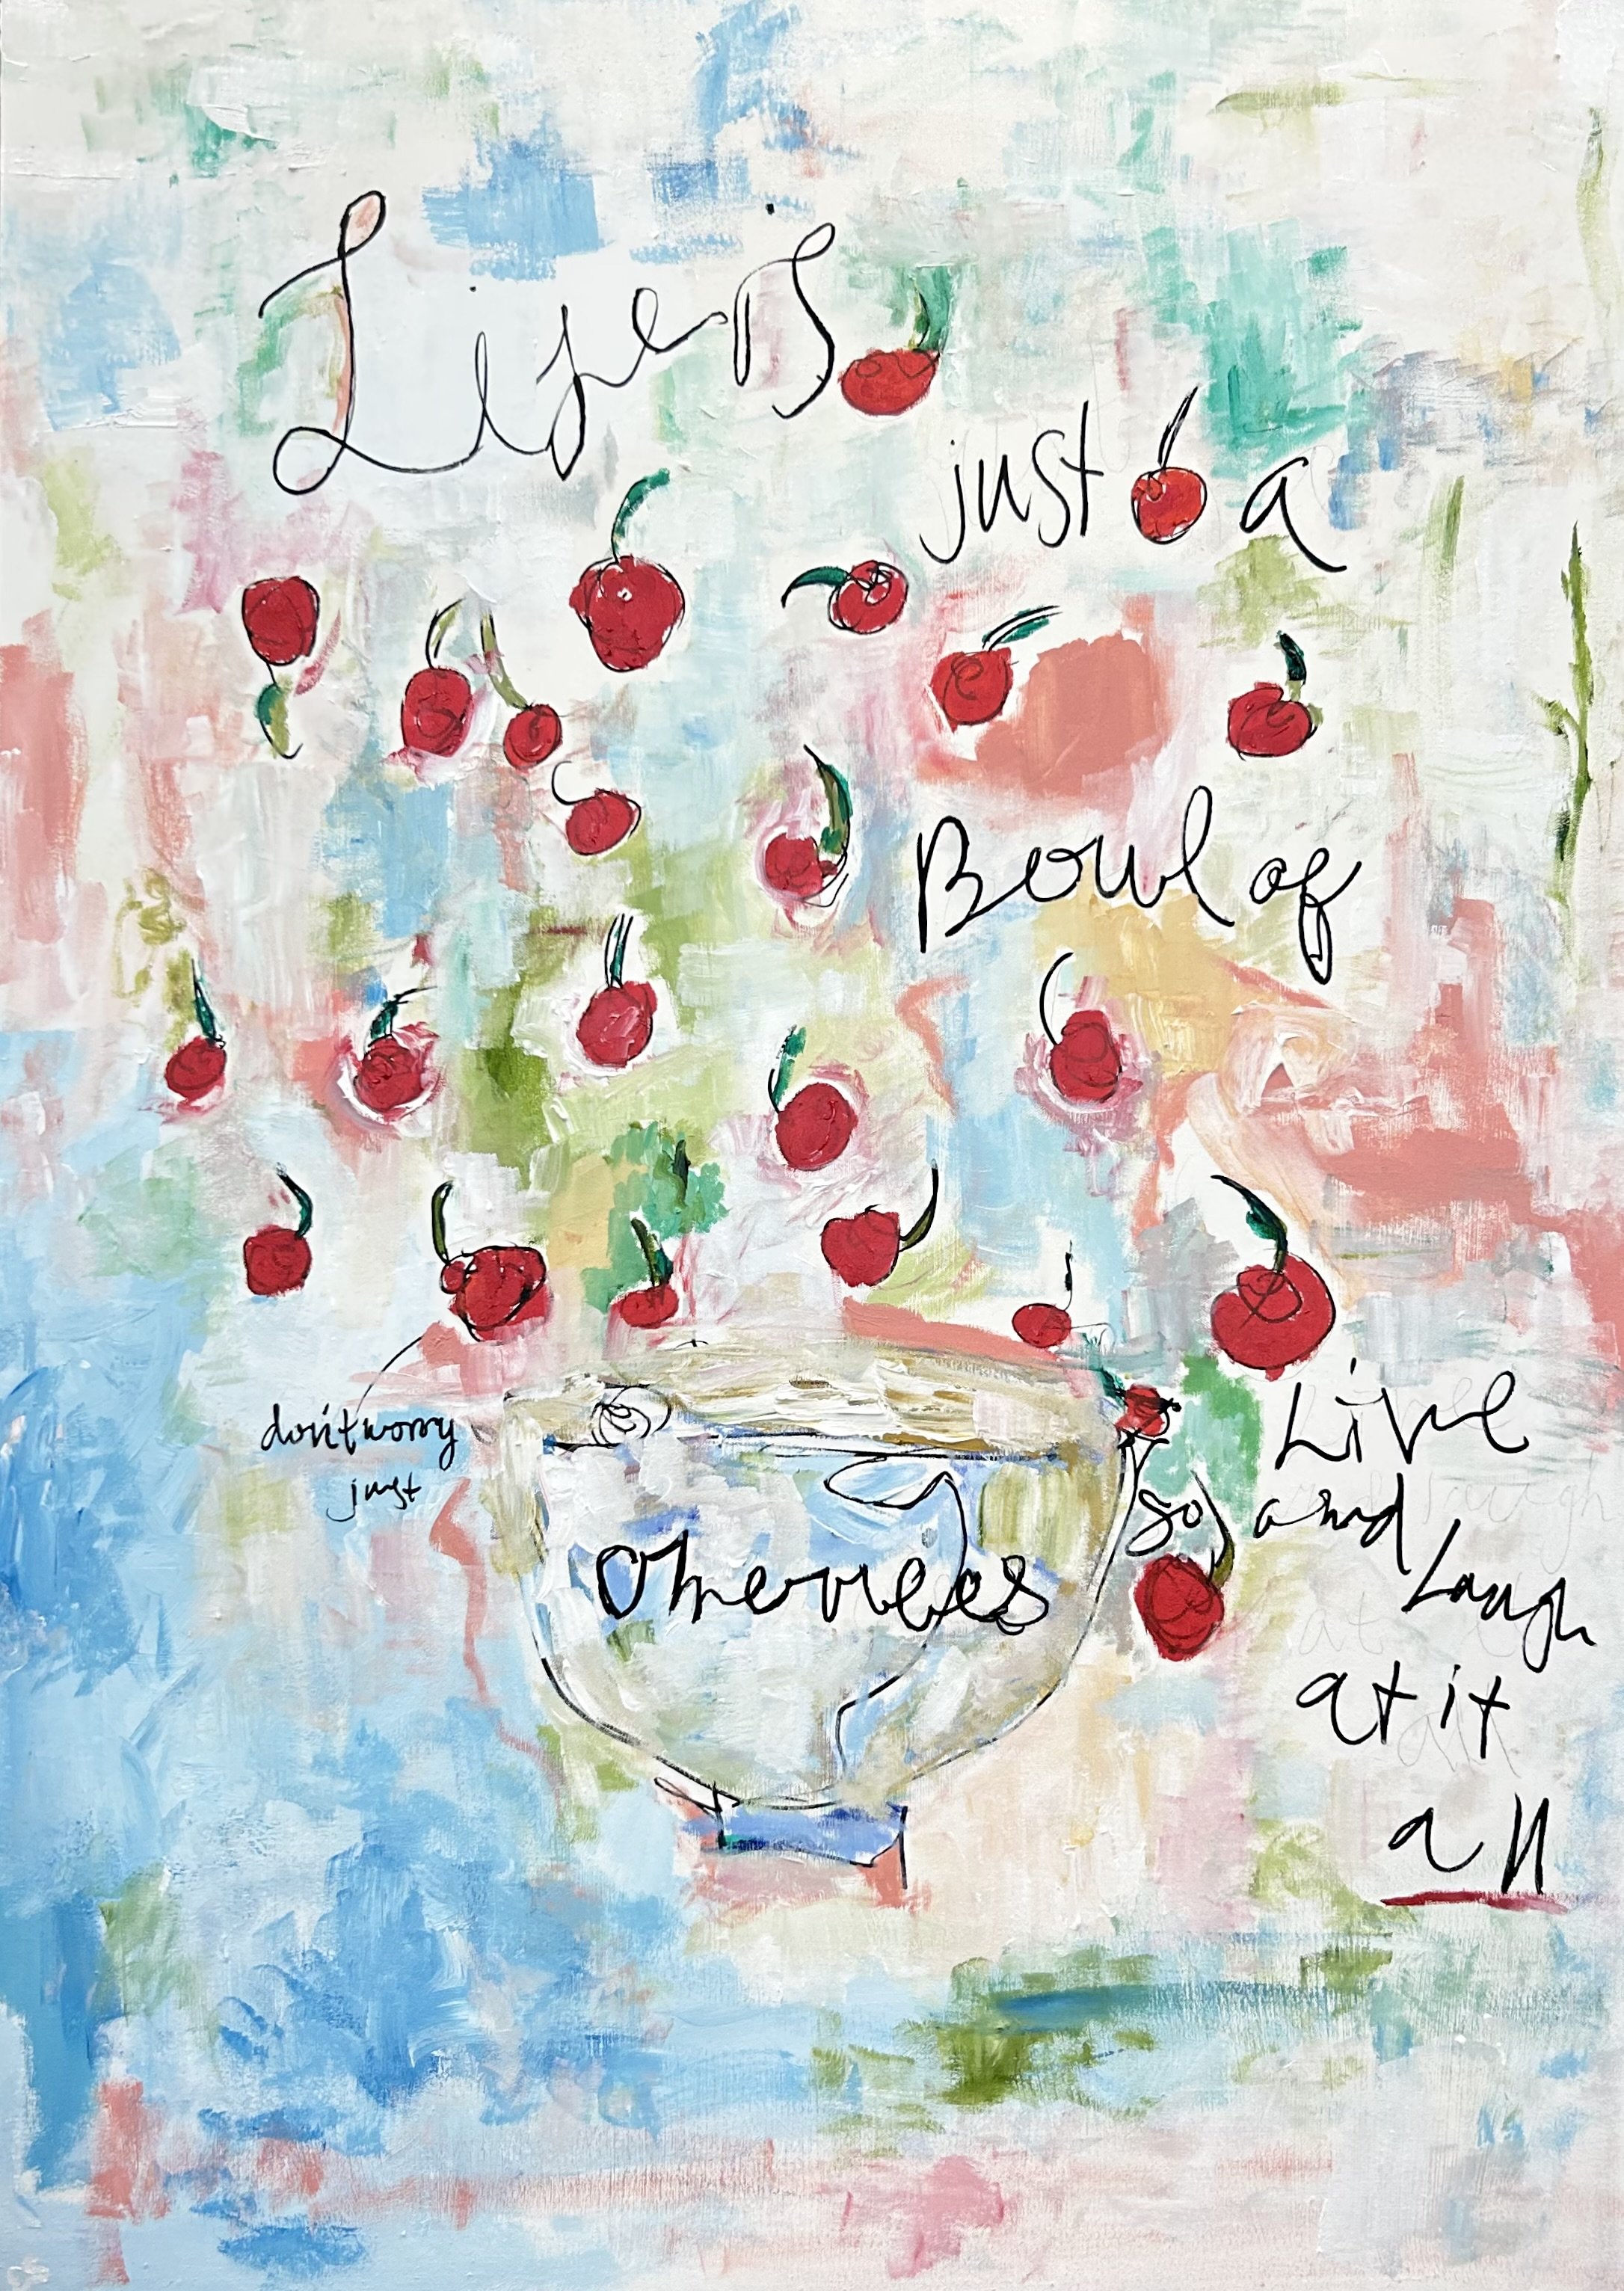 Life is
just a
Bowl of
Cherries
don't worry
just
so
Live
and
Laugh
at it
all
NS